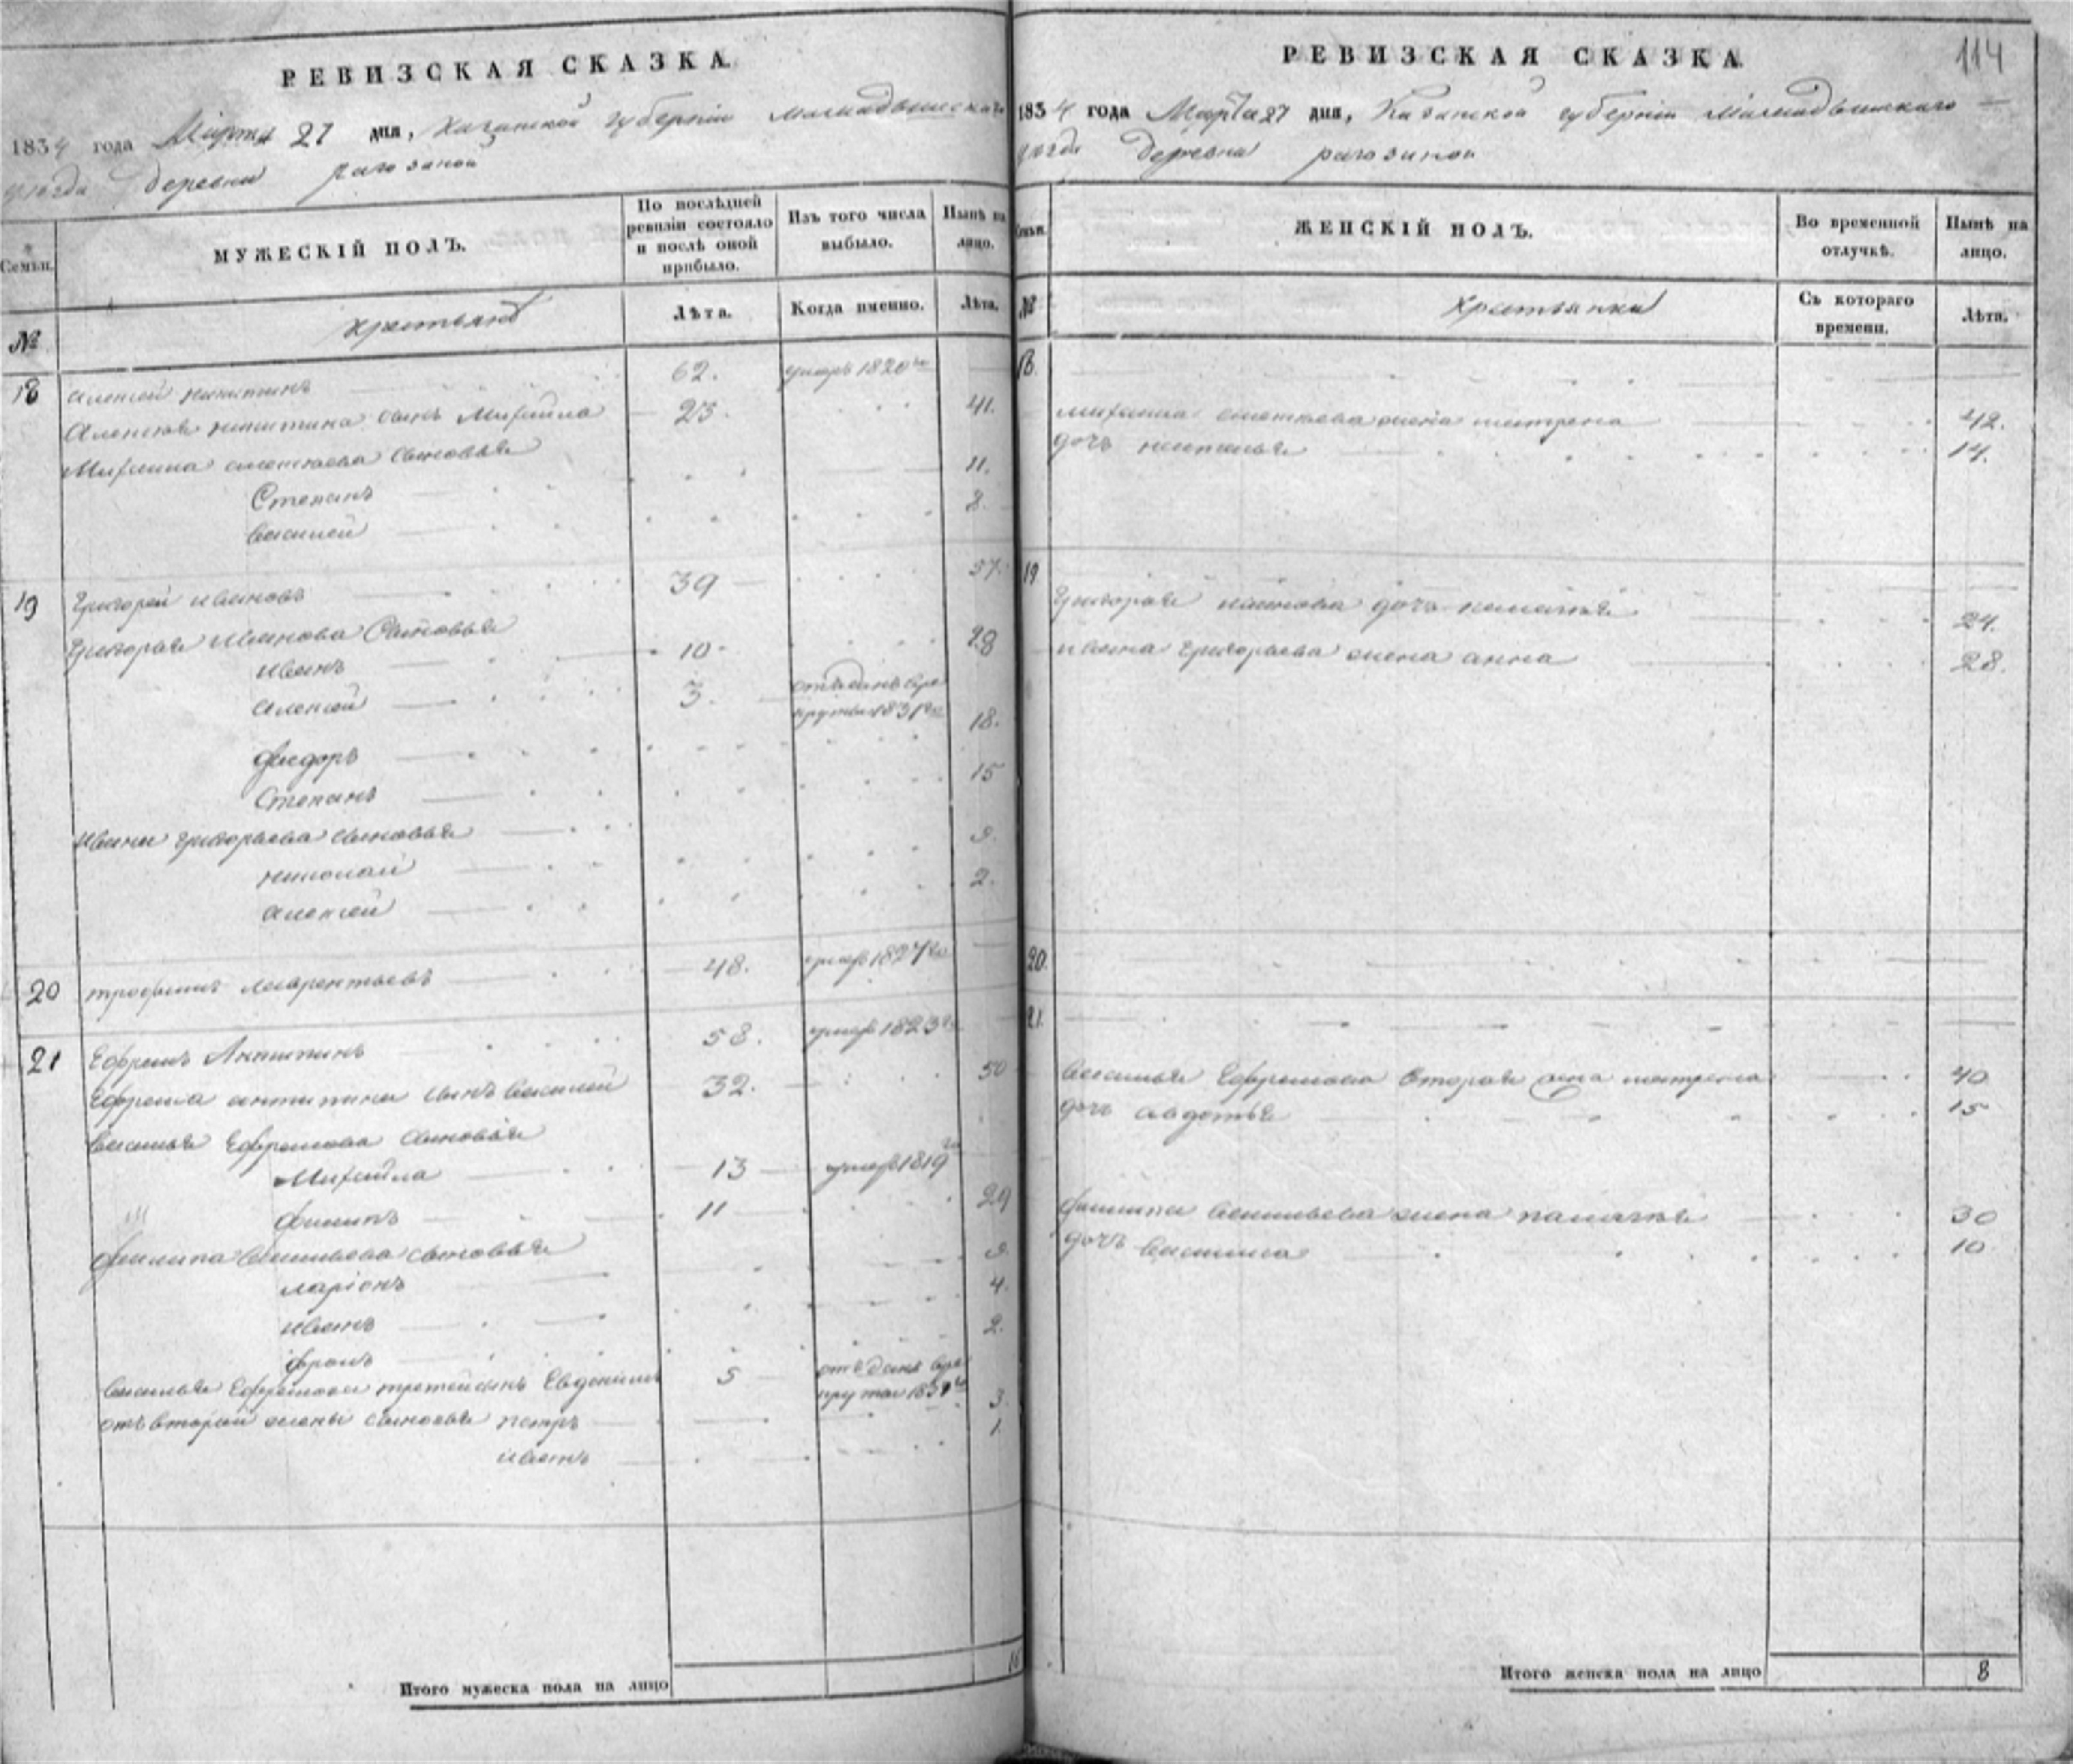 РЕВИЗСКАЯ СКАЗКА
1834 года Марта 27 дня, Казанской губернии Мамадышскаго
уезда деревни рагозиной
Семьи.
МУЖЕСКІЙ ПОЛЪ.
По послѣдней ревизіи состояло и послѣ оной прибыло.
Изъ того числа выбыло.
Нынѣ на лицо.
№
крестьянъ
Лѣта.
Когда именно.
Лѣта.
18 алексей никитинъ 62. умеръ 1820 го
Алексея никитина сынъ Михайла 23. 41.
Михаила алексеева сыновья
Степанъ 11.
василей 8.
19 Григорей ивановъ 39 57.
Григорья Иванова Сыновья
иванъ 10. 28
алексей 3. отъданъ вре
круты 1831 го
фиодоръ 18.
Степанъ 15
Ивана григорьева сыновья
николай 9.
алексей 2.
20 трофимъ лаврентьевъ 48. умеръ 1827 го
21 Ефремъ Антипинъ 58. умеръ 1823 го
Ефрема антипина сынъ василей 32. 50
васильи Ефремова сыновья
Михайла 13 умеръ 1819 го
филипъ 11 29
филипа васильева сыновья
ларіонъ 9.
иванъ 4.
фролъ 2.
василья Ефремова третей сынъ Евдокимъ 5 отъданъ вре
круты
отъ второй жены сыновья петръ 3.
иванъ 1.
Итого мужеска пола на лицо
114
РЕВИЗСКАЯ СКАЗКА
1834 года Марта 27 дня, Казанской губернии Мамадышскаго
уезда деревни рагозиной
Семьи.
ЖЕНСКІЙ ПОЛЪ.
Во временной отлучкѣ.
Нынѣ на лицо.
№
Крестьянки
Съ котораго времени.
Лѣта.
18.
михаила алексеева жена матрена 42.
дочь наталья 14.
19
григорья иванова дочь пелагея 24.
ивана григорьева жена анна 28.
20.
21.
василья Ефремова вторая жена матрена 40
дочь авдотья 15
филипа васильева жена палагея 30
дочь василиса 10
Итого женска пола на лицо 8